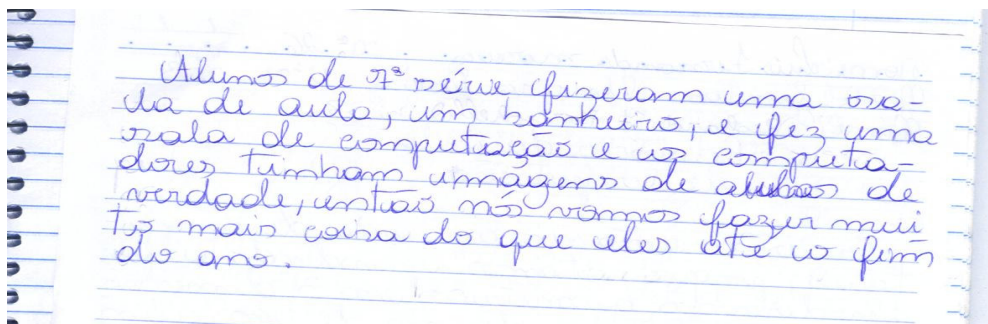 Alunos de 7ª série fizeram uma sa-
la de aula, um banheiro, e fez uma
sala de computação e os computa-
dores tinham imagens de alunos de
verdade, então nós vamos fazer mui
to mais coisa do que eles até o fim
do ano.